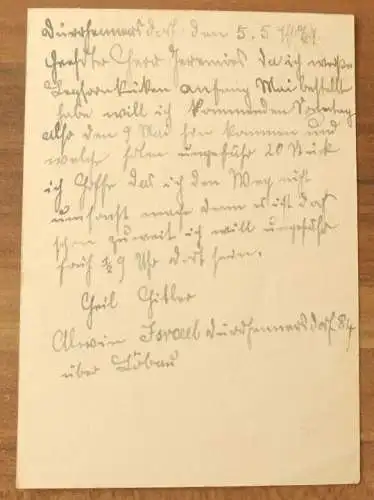 Dürrhennersdorf. den 5. 5
Geehrter Herr Jeremies da ich weiße
Leghornküken anfang Mai bestellt
habe will ich kommenden Sonntag
also den 9 Mai hin kommen und
welche holen ungefähr 20 Stück
ich hoffe das ich den Weg nicht
umsonst mache denn es ist doch
schon zuweit ich will ungefähr
früh ½ 9 Uhr dort sein.
Heil Hitler
Alwin Israel Dürrhennersdorf. 84
über Löbau